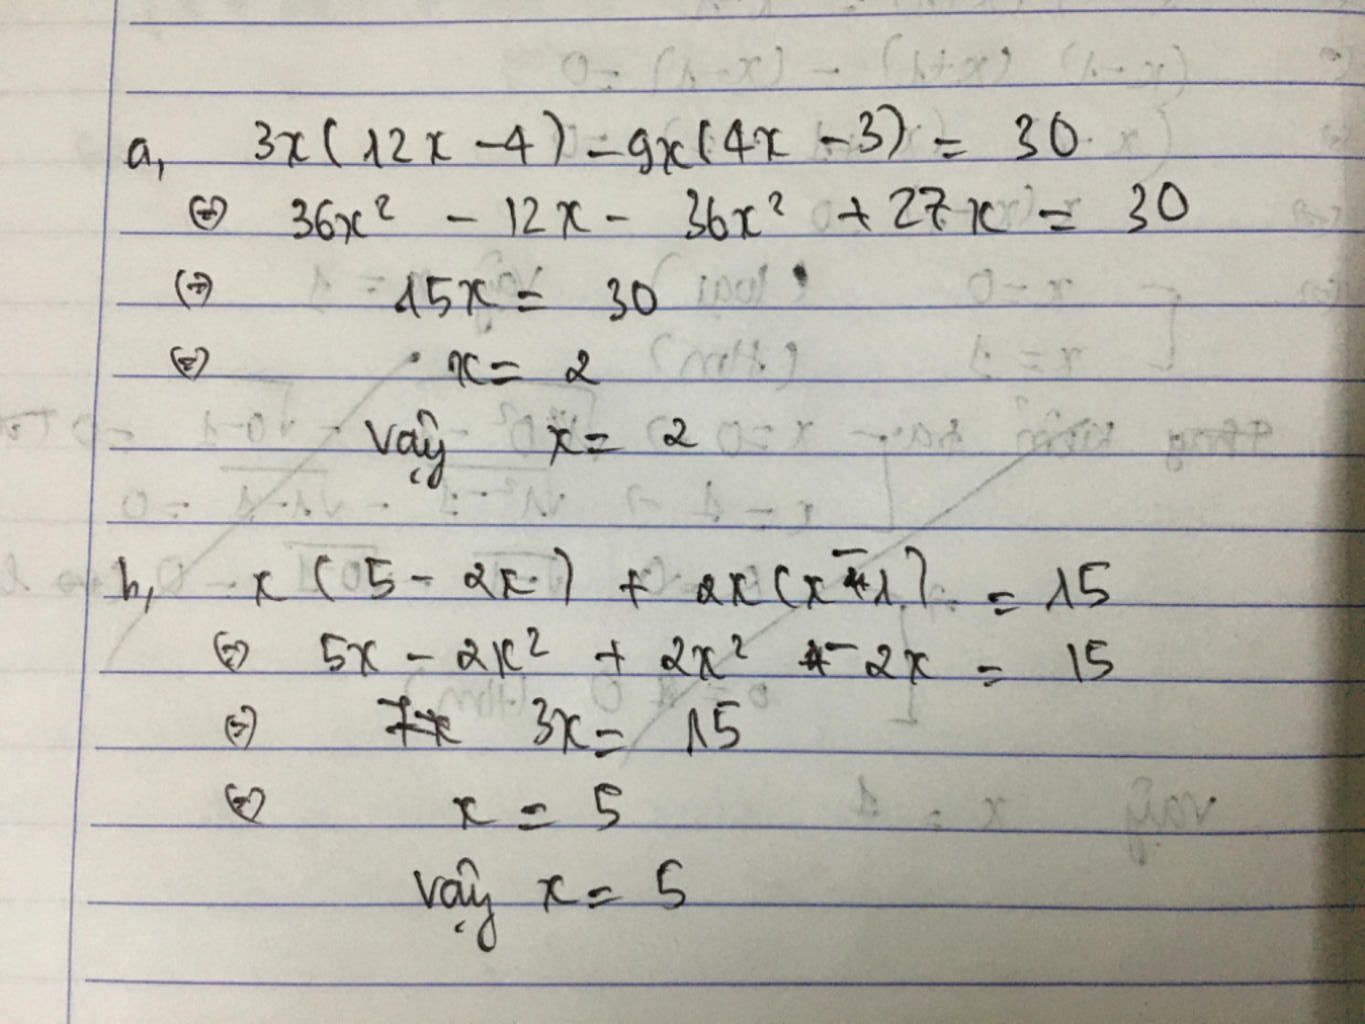 a, 3x(12x - 4) - 9x(4x - 3) = 30
⇔ 36x² - 12x - 36x² + 27x = 30
⇔ 15x = 30
⇔ x = 2
vậy x = 2
b, x(5 - 2x) + 2x(x - 1) = 15
⇔ 5x - 2x² + 2x² - 2x = 15
⇔ 7x 3x = 15
⇔ x = 5
vậy x = 5